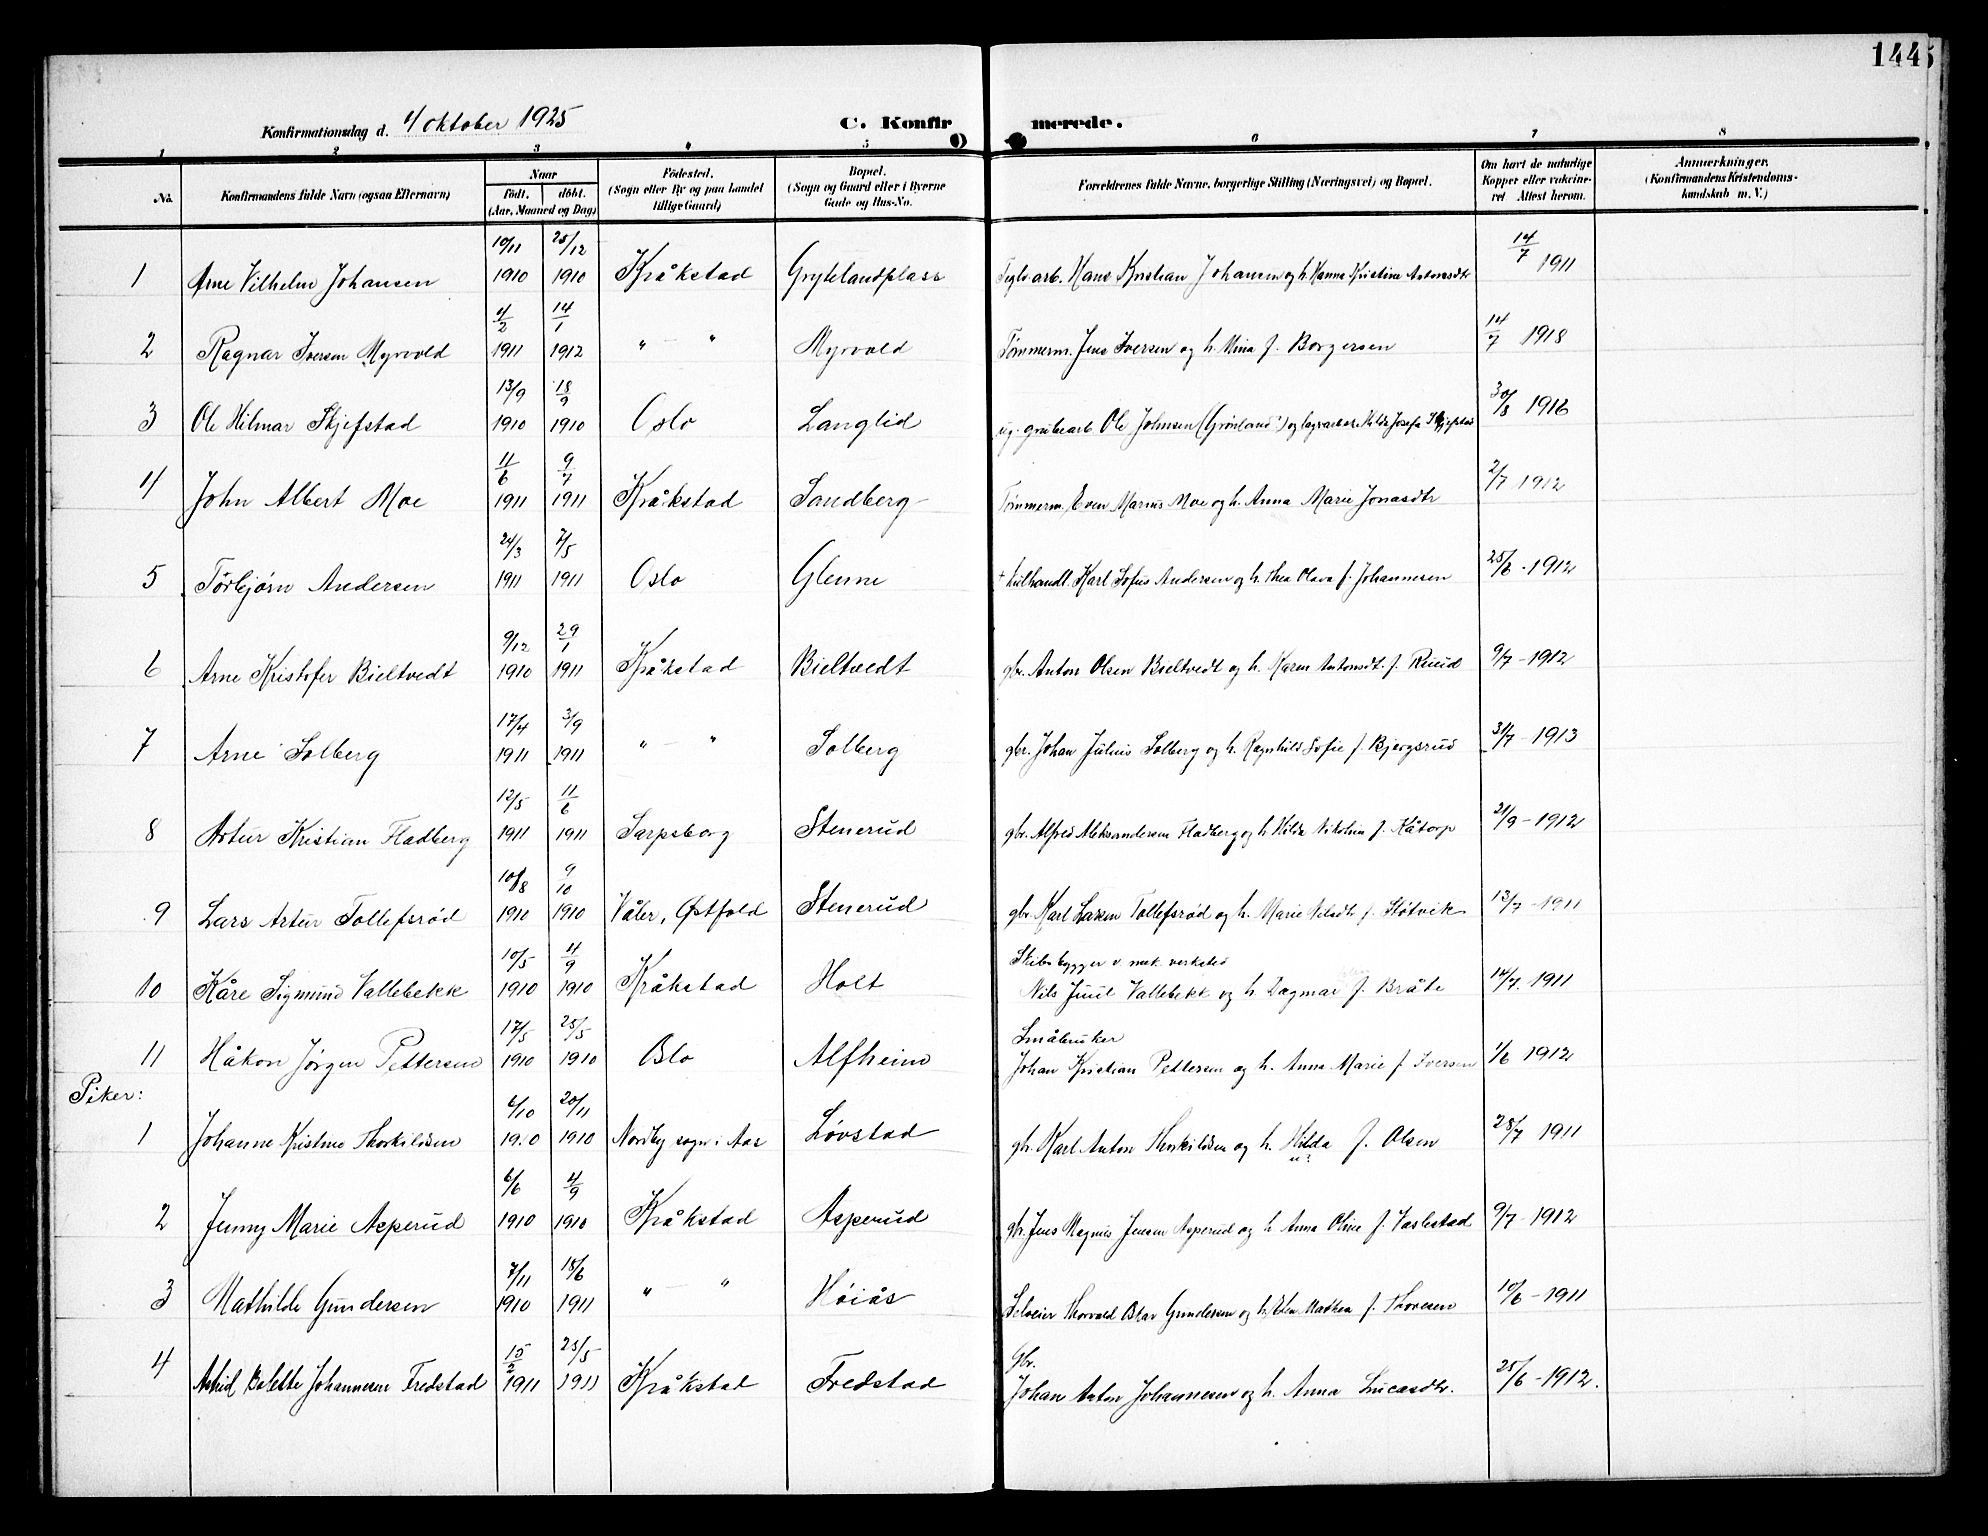 144
Konfirmationsdag d. 4 oktober 1925 C. Konfirmerede.
1 2 3 4 5 6 7 8
No. Konfirmandens fulde Navn (ogsaa Efternavn) Naar født. døbt. (Aar, Maaned og Dag) Fødested. (Sogn eller By og paa Landet tillige Gaard) Bopæl. (Sogn og Gaard eller i Byerne Gade og Hus-No. Forældrenes fulde Navne, borgerlige Stilling (Næringsvei) og Bopæl. Om havt de naturlige Kopper eller vakcineret Attest herom. Anmærkninger. (Konfirmandens Kristendomskundskab m. V.)
1 Arne Vilhelm Johansen 10/11 1910 25/12 1910 Kråkstad Gryteland plass Teglv.arb. Hans Kristian Johansen og h. Hanna Kristine Antonsdtr 14/7 1911
2 Ragnar Iversen Myrvold 4/2 1911 14/1 1912 " - " Myrvold Tømmerm. Jens Iversen og h. Mina f. Borgersen 14/7 1918
3 Ole Hilmar Skjefstad 13/9 1910 18/9 1910 Oslo Langlid ug. grubearb. Ole Johnsen (Grønland?) og Hilda Josefa Skjefstad 30/8 1916
4 John Albert Moe 11/6 1911 9/7 1911 Kråkstad Sandberg Tømmerm. Even Marius Moe og h. Anna Marie Jonasdtr 2/7 1912
5 Torbjørn Andersen 24/3 1911 7/5 1911 Oslo Glenne + kulhandl. Karl Sofus Andersen og h. Thea Olava f. Johannesen 25/6 - 1912
6 Arne Kristofer Bieltvedt 9/12 1910 29/1 1911 Kråkstad Bieltvedt gbr. Anton Olsen Bieltvedt og h. Karen Antonsdt. f. Ruud 9/7 - 1912
7 Arne Solberg 17/4 1911 3/9 1911 " - " Solberg gbr. Johan Julius Solberg og h. Ragnhild Sofie f. Bjergsrud 31/7 - 1913
8 Artur Kristian Fladberg 12/5 1911 11/6 1911 Sarpsborg Stenerud gbr. Alfred Aleksandersen Fladberg og h. Hilda Nikoline f. Kåtorp 21/9 - 1912
9 Lars Artur Tollefsrød 10/8 1910 9/10 1910 Våler, Østfold Stenerud gbr. Karl Larsen Tollefsrød og h. Marie Nilsdtr f. Sløtvik 13/7 - 1911
Skibsbygger v. mek. verksted
10 Kåre Sigmund Vallebekk 10/5 1910 4/9 1910 Kråkstad Holt Nils Juul Vallebekk og h. Dagmar f. Bråte 14/7. 1911
Småbruker
11 Håkon Jørgen Pettersen 17/5 1910 25/5 1910 Oslo Alfheim Johan Kristian Pettersen og h. Anna Marie f Iversen 1/6 1912
Piker:
1 Johanne Kristine Thorkildsen 6/10 1910 20/11 1910 Nordby sogn i Aas Løvstad gbr. Karl Anton Thorkildsen og h. Hilda f. Olsen 28/7 1911
2 Jenny Marie Asperud 6/6 1910 4/9 1910 Kråkstad Asperud gbr. Jens Magnus Jensen Asperud og h Anna Oline f. Vaslestad 9/7 - 1912
3 Mathilde Gundersen 7/11 1910 18/6 1911 " - " Høiås Selveier Thorvald Gundersen og h. Mathea f. Thoresen 10/6 - 1911
Gbr.
4 Astrid Bolette Johannesen Fredstad 15/2 1911 25/5 1911 Kråkstad Fredstad Johan Anton Johannesen og h. Anna Lucasdtr. 25/6 - 1912.